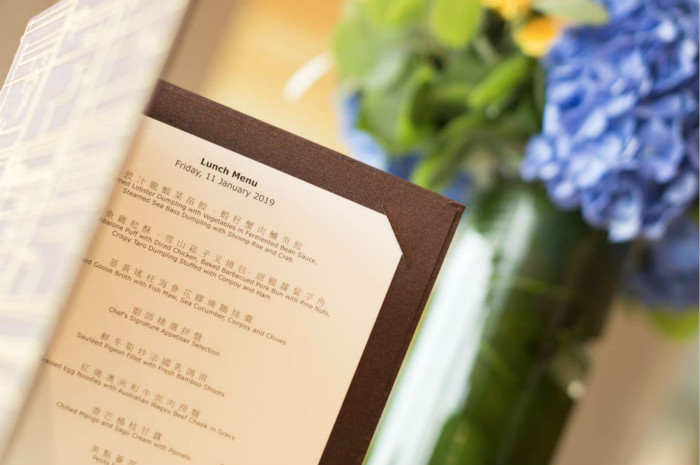 Lunch Menu
Friday, 11 January 2019
汁龍蝦菜苗餃，蝦籽蟹肉鱸魚餃
Lobster Dumpling with Vegetables in Fermented Bean Sauce,
Steamed Sea Bass Dumpling with Shrimp Roe and Crab
魚雞粒酥，雪山松子叉燒包，甜腿蘿蔔芋角
Puff with Diced Chicken, Baked Barbecued Pork Bun with Pine Nuts,
Crispy Taro Dumpling Stuffed with Conpoy and Ham
海參花膠燒鵝絲羹
Goose Broth with Fish Maw, Sea Cucumber, Conpoy and Chives
廚師精選拼盤
Chef's Signature Appetiser Selection
鮮冬筍炒法國乳鴿甫
Sautéed Pigeon Fillet with Fresh Bamboo Shoots
紅燒澳洲和牛面肉撈麵
Egg Noodles with Australian Wagyu Beef Cheek in Gravy
香芒楊枝甘露
Chilled Mango and Sago Cream with Pomelo
美點
Petits